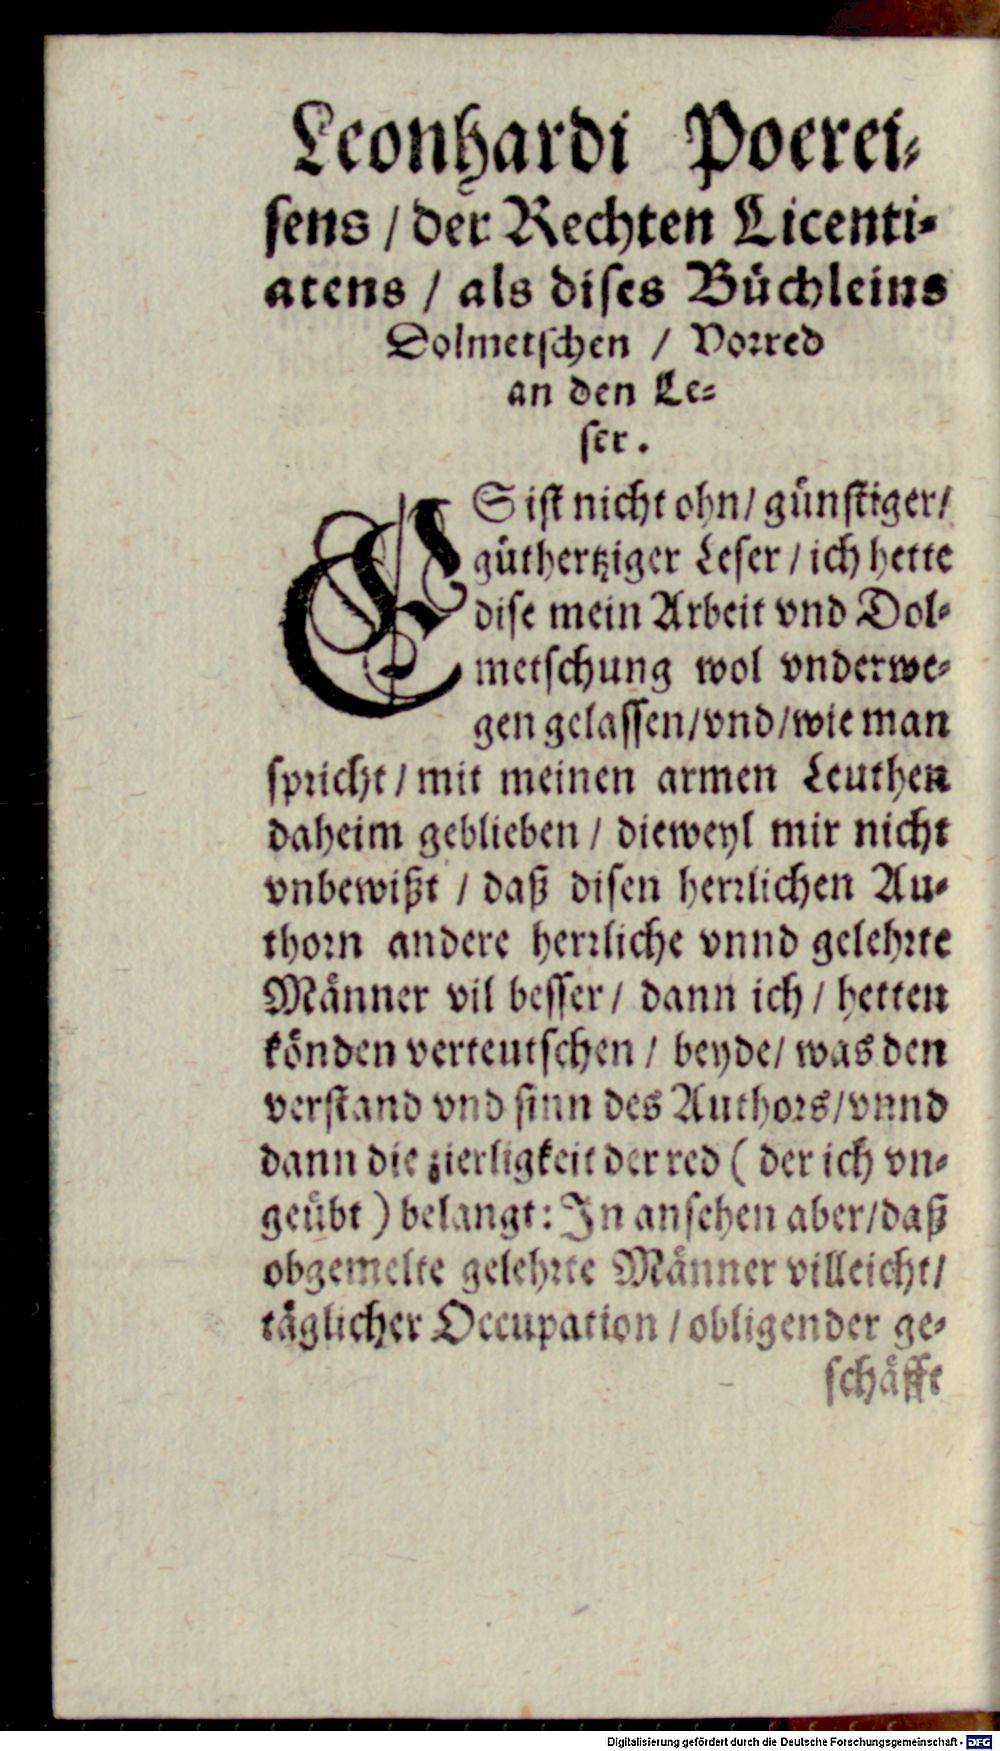 Leonhardi Poerei⸗
sens / der Rechten Licenti⸗
atens / als dises Büchleins
Dolmetschen / Vorred
an den Le⸗
ser.
ES ist nicht ohn / günstiger /
güthertziger Leser / ich hette
dise mein Arbeit vnd Dol⸗
metschung wol vnderwe⸗
gen gelassen / vnd / wie man
spricht / mit meinen armen Leuthen
daheim geblieben / dieweyl mir nicht
vnbewißt / daß disen herrlichen Au⸗
thorn andere herrliche vnnd gelehrte
Männer vil besser / dann ich / hetten
könden verteutschen / beyde / was den
verstand vnd sinn des Authors / vnnd
dann die zierligkeit der red ( der ich vn⸗
geübt ) belangt: In ansehen aber / daß
obgemelte gelehrte Männer villeicht /
täglicher Occupation / obligender ge⸗
schäfft
Digitalisierung gefördert durch die Deutsche Forschungsgemeinschaft - DFG